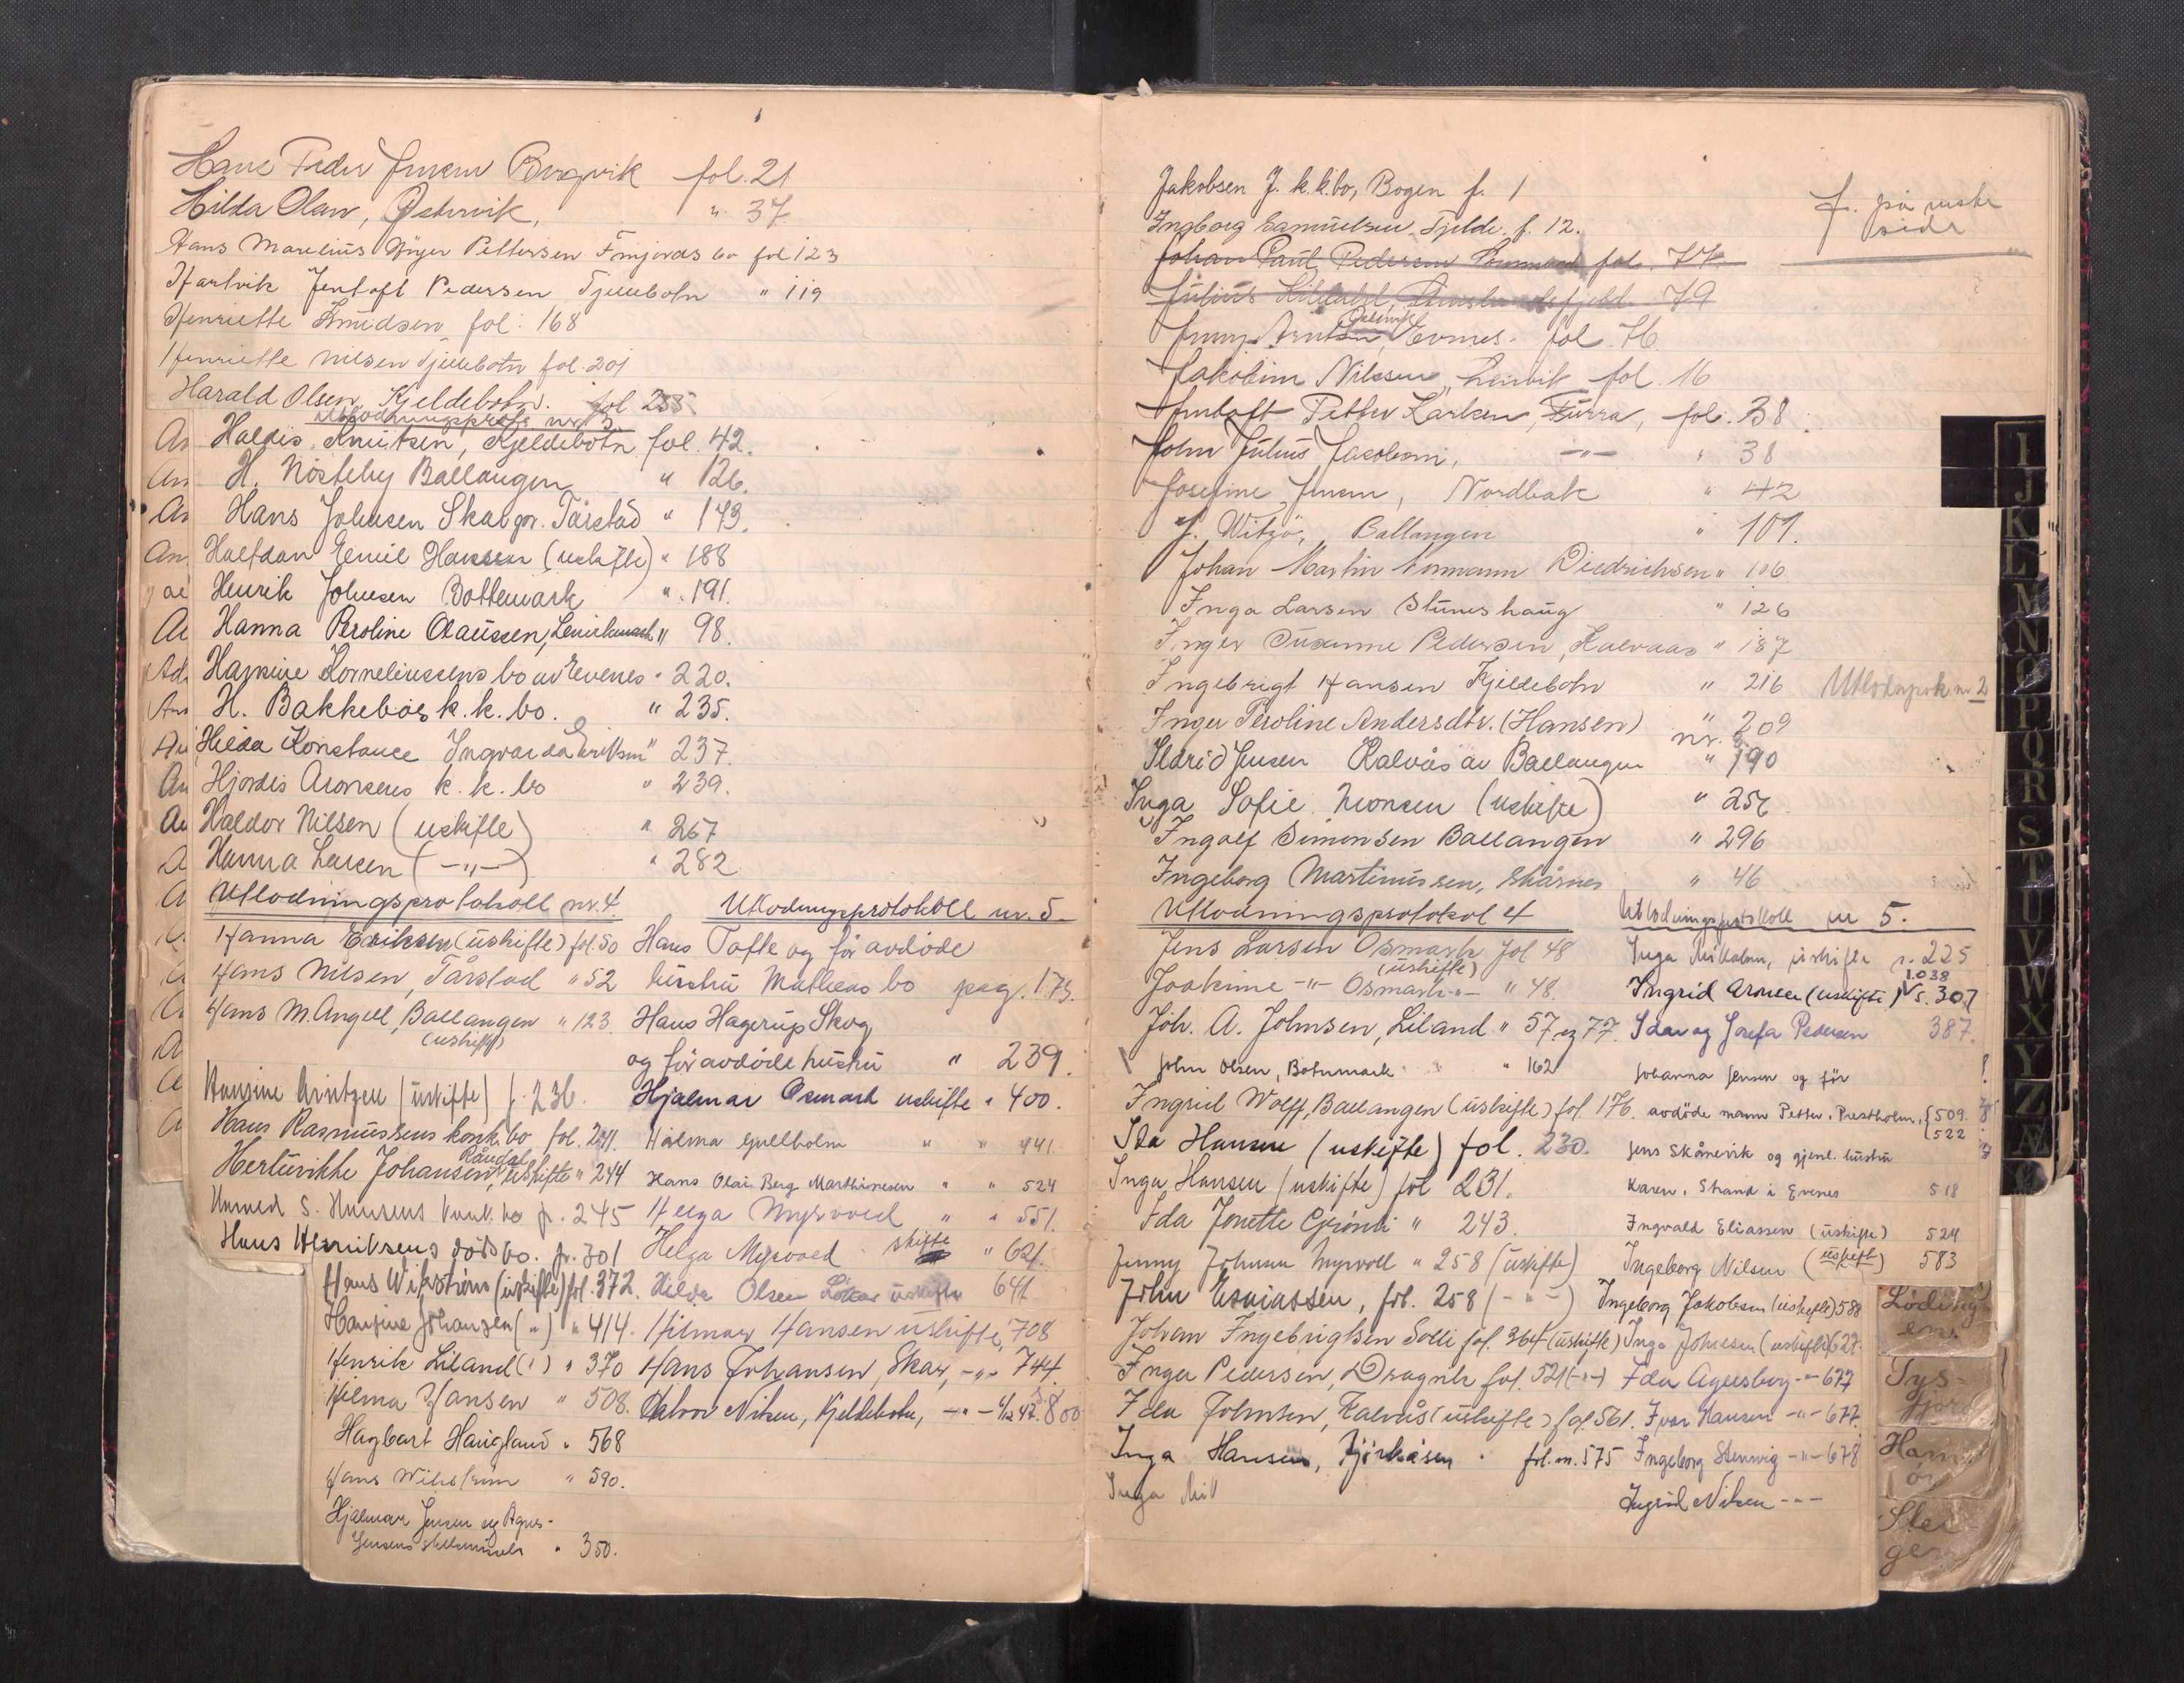 Hans Peder Jensen Bergvik fol. 21
Hilda Olsen, Østervik, " 37
Hans Marelius Pettersen bo fol 123
Hartvik Jentoft Pedersen Kjeldebotn " 119
Henriette Knudsen fol: 168
Henriette Nilsen Kjeldebotn fol. 201
Harald Olsen, Kjeldebotn. fol 235
Utlodningsprotk. nr 3.
Haldis Knutsen, Kjeldebotn fol. 42.
H. Nösteby Ballangen " 126.
Hans Johnsen Skar pr. Tårstad " 173.
Halfdan Emil Hansen (uskifte) " 188
Henrik Johnsen Bottenmark ". 191.
Hanna Peroline Olaussen, Lenvikmark " 98.
Hansine Korneliussens bo av Evenes " 220.
H. Bakkebös k. k. bo. " 235.
Hilda Konstance Ingvarda Eriksen " 237.
Hjordis Aronsens k. k. bo " 239.
Haldor Nilsen (uskifte) " 267
Hanna Larsen (-"-) " 282
Utlodningsprotokoll nr. 4.
Hanna Eriksen (uskifte) fol. 50
Hans Nilsen, Tårstad " 52
Hans M. Angell, Ballangen " 123.
(uskifte)
Hansine Arntzen (uskifte) f. 236.
Hans Rasmussens konk. bo fol. 241.
Råndal
Hertinikke Johansen, uskifte " 244
S. Hansens konk. bo f. 245
Hans Henriksens dödsbo. fr. 301
Hans Wikström (uskifte) fol. 372.
Hansine Johansen (") " 414.
Henrik Liland (") " 370
Hilma Hansen " 508.
Hagbart Haugland " 568
Hans Wikström " 590.
Hjalmar Jensen og Agnes
Jensens " 350.
Utlodningsprotokoll nr. 5
Hans Tofte og før avdöde
hustru Matheas bo pag. 173.
Hans Hagerup Skog
og før avdöde hustru " 239.
Hjalmar Osmark uskifte " 400.
Halma Gjellholm " " 441.
Hans Olai Berg Marthinesen " " 524
Helga Myrvold " " 551.
Helga Myrvold skifte " 621.
Hilda Olsen uskifte 641
Hilmar Hansen uskifte, 708
Hans Johansen, Skar, -"- 744.
Halvor Nilsen, Kjeldebotn, -"- 4/12 47. s. 800
Jakobsen J. k.k.bo, Bogen f. 1
Ingborg Samuelsen Fjelde. f. 12.
J. på neste
side
Johan Paul Pedersen fol. 77.
Julius 79
Østervik
Jenny Arntsen, Evenes. fol. 76
Jakobine Nilssen, Lenvik fol. 16
Jentoft Petter Larsen, Furra, fol. 38.
John Julius Jacobsen, -"- " 38
Josefine Jensen, Nordbak " 42
J. Witzø, Ballangen " 101.
Johan Martin Normann Diedrichsen " 106
Inga Larsen Stuneshaug " 126
Inger Susanne Pedersen, Kalvaas " 187
Ingebrigt Hansen Kjeldebotn " 216
Inger Peroline Andersdtr. (Hansen) " 209
Utlodnprotk nr 2
nr. 3
Ildrid Jensen Kalvås av Ballangen " 190
Inga Sofie Monsen (uskifte) " 256
Ingolf Simonsen Ballangen " 296
Ingeborg Martinussen, Skårnes " 46
Utlodningsprotokol 4
Jens Larsen Osmark fol 48
(uskifte)
Joakime -"- Osmark -"- " 48.
Joh. A. Johnsen, Liland " 57 og 77.
John Olsen, Botnmark " 162
Ingrid Wolff, Ballangen (uskifte) fol. 176.
Ida Hansen (uskifte) fol. 230.
Inga Hansen (uskifte) fol 231.
Ida Jonette Grönli " 243.
Jenny Johnsen Myrvoll " 258 (uskifte)
John Esaiassen, fol. 258 (-"-)
Johan Ingebrigtsen Solli fol. 364 (uskifte)
Inga Pedersen, Dragvik fol. 521 (-"-)
Ida Johnsen, Kalvås (uskifte) fol. 561.
Inga Hansen, Bjørkåsen. fol. nr. 575
Inga Mik
Utlodningsprotokoll nr 5.
Inga Mikkelsen, uskifte s. 225
1038
Ingrid Arnesen (uskifte) s. 307
Idar og Josefa Pedersen 387.
Johanna Jensen og før
avdöde mann Petter. Prestholm, {509.
522
Jens Skånevik og gjenl. hustru
Karen. Strand i Evenes 518
Ingvald Eliassen (uskifte) 524
Ingeborg Nilsen (uskifte) 583
Ingeborg Jakobsen (uskifte) 588
Inga Johnsen (uskifte) 627.
Ida Ageesberg -"- 677
Ivar Hansen -"- 677.
Ingeborg Stenvig -"- 678
Ingrid Nilsen -"-
I
J
K
L
M
N
O
P
Q
R
S
T
U
V
W
X
Y
Z
Æ
Ø
Löding
en.
Tys-
fjord
Ham
ör
Stei-
gen